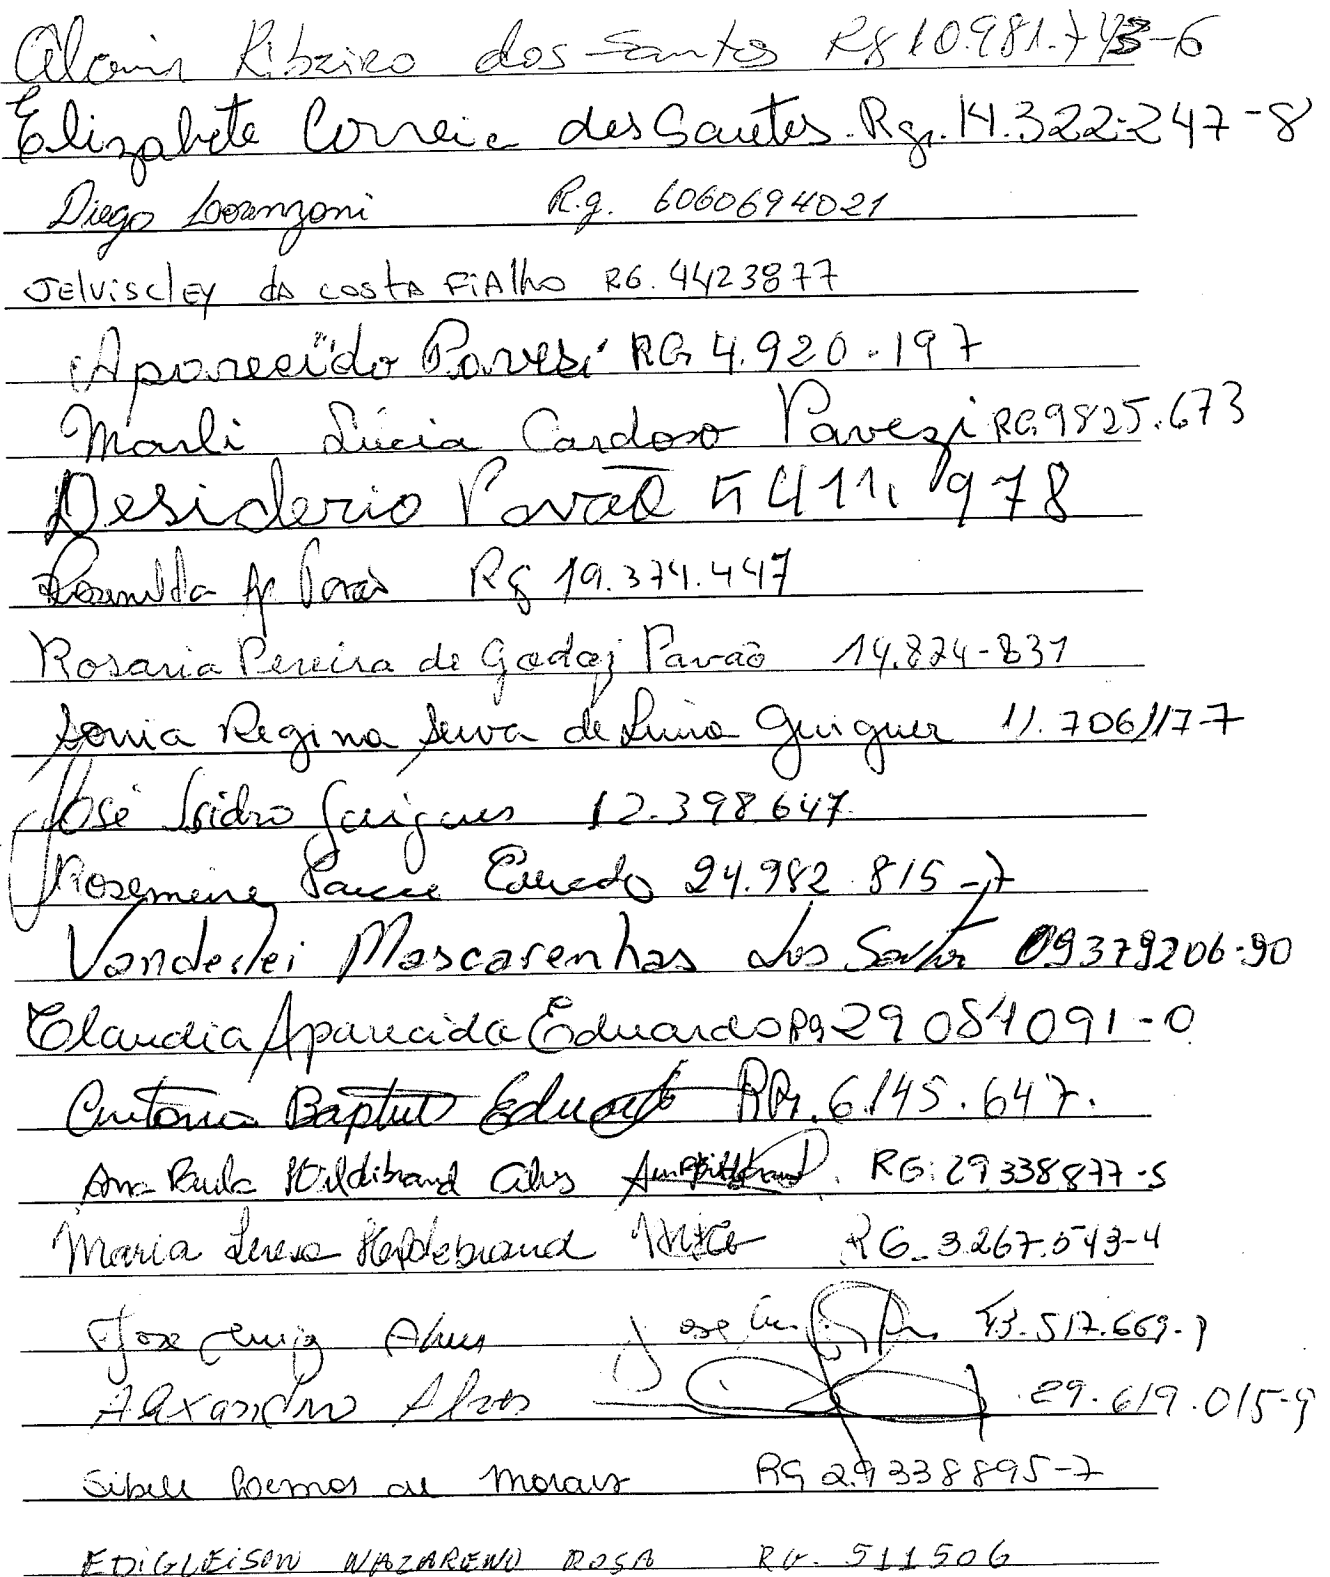 Ribeiro dos Santos Rg 10.981.743-6
Elizabete Correia dos Santos. Rg. 14.322.247-8
Diego Lorenzoni R.g. 6060694021
JElVisclEy dA costA FiAlho RG. 4423877
Aparecido Pavesi RG 4.920.197
Marli Lúcia Cardoso Pavezi RG.9825.673
Desiderio Pavão 5411.978
Ap Pavão Rg 19.374.447
Rosaria Pereira de Godoj Pavão 14.824-831
Sonia Regina de Guiguer 11.706117-7
José Isidro 12.398.647
Rosemeire 24.982.815-7
Vanderlei Mascarenhas dos Santos 09379206-90
Claudia Aparecida Eduardo Rg 29084091-0
Baptista Eduardo RG. 6.145.647.
Ana Paula Hildibrand Alves RG: 29.338.877-5
Maria Teresa Hildebrand RG. 3.267.543-4
Jose Luiz Alves 13.517.669-9
Alexandro Alves 29.619.015-9
Sibele Lemos de Morais RG 29338895-7
EDIGLEiSON NAZARENO ROSA RG. 511506